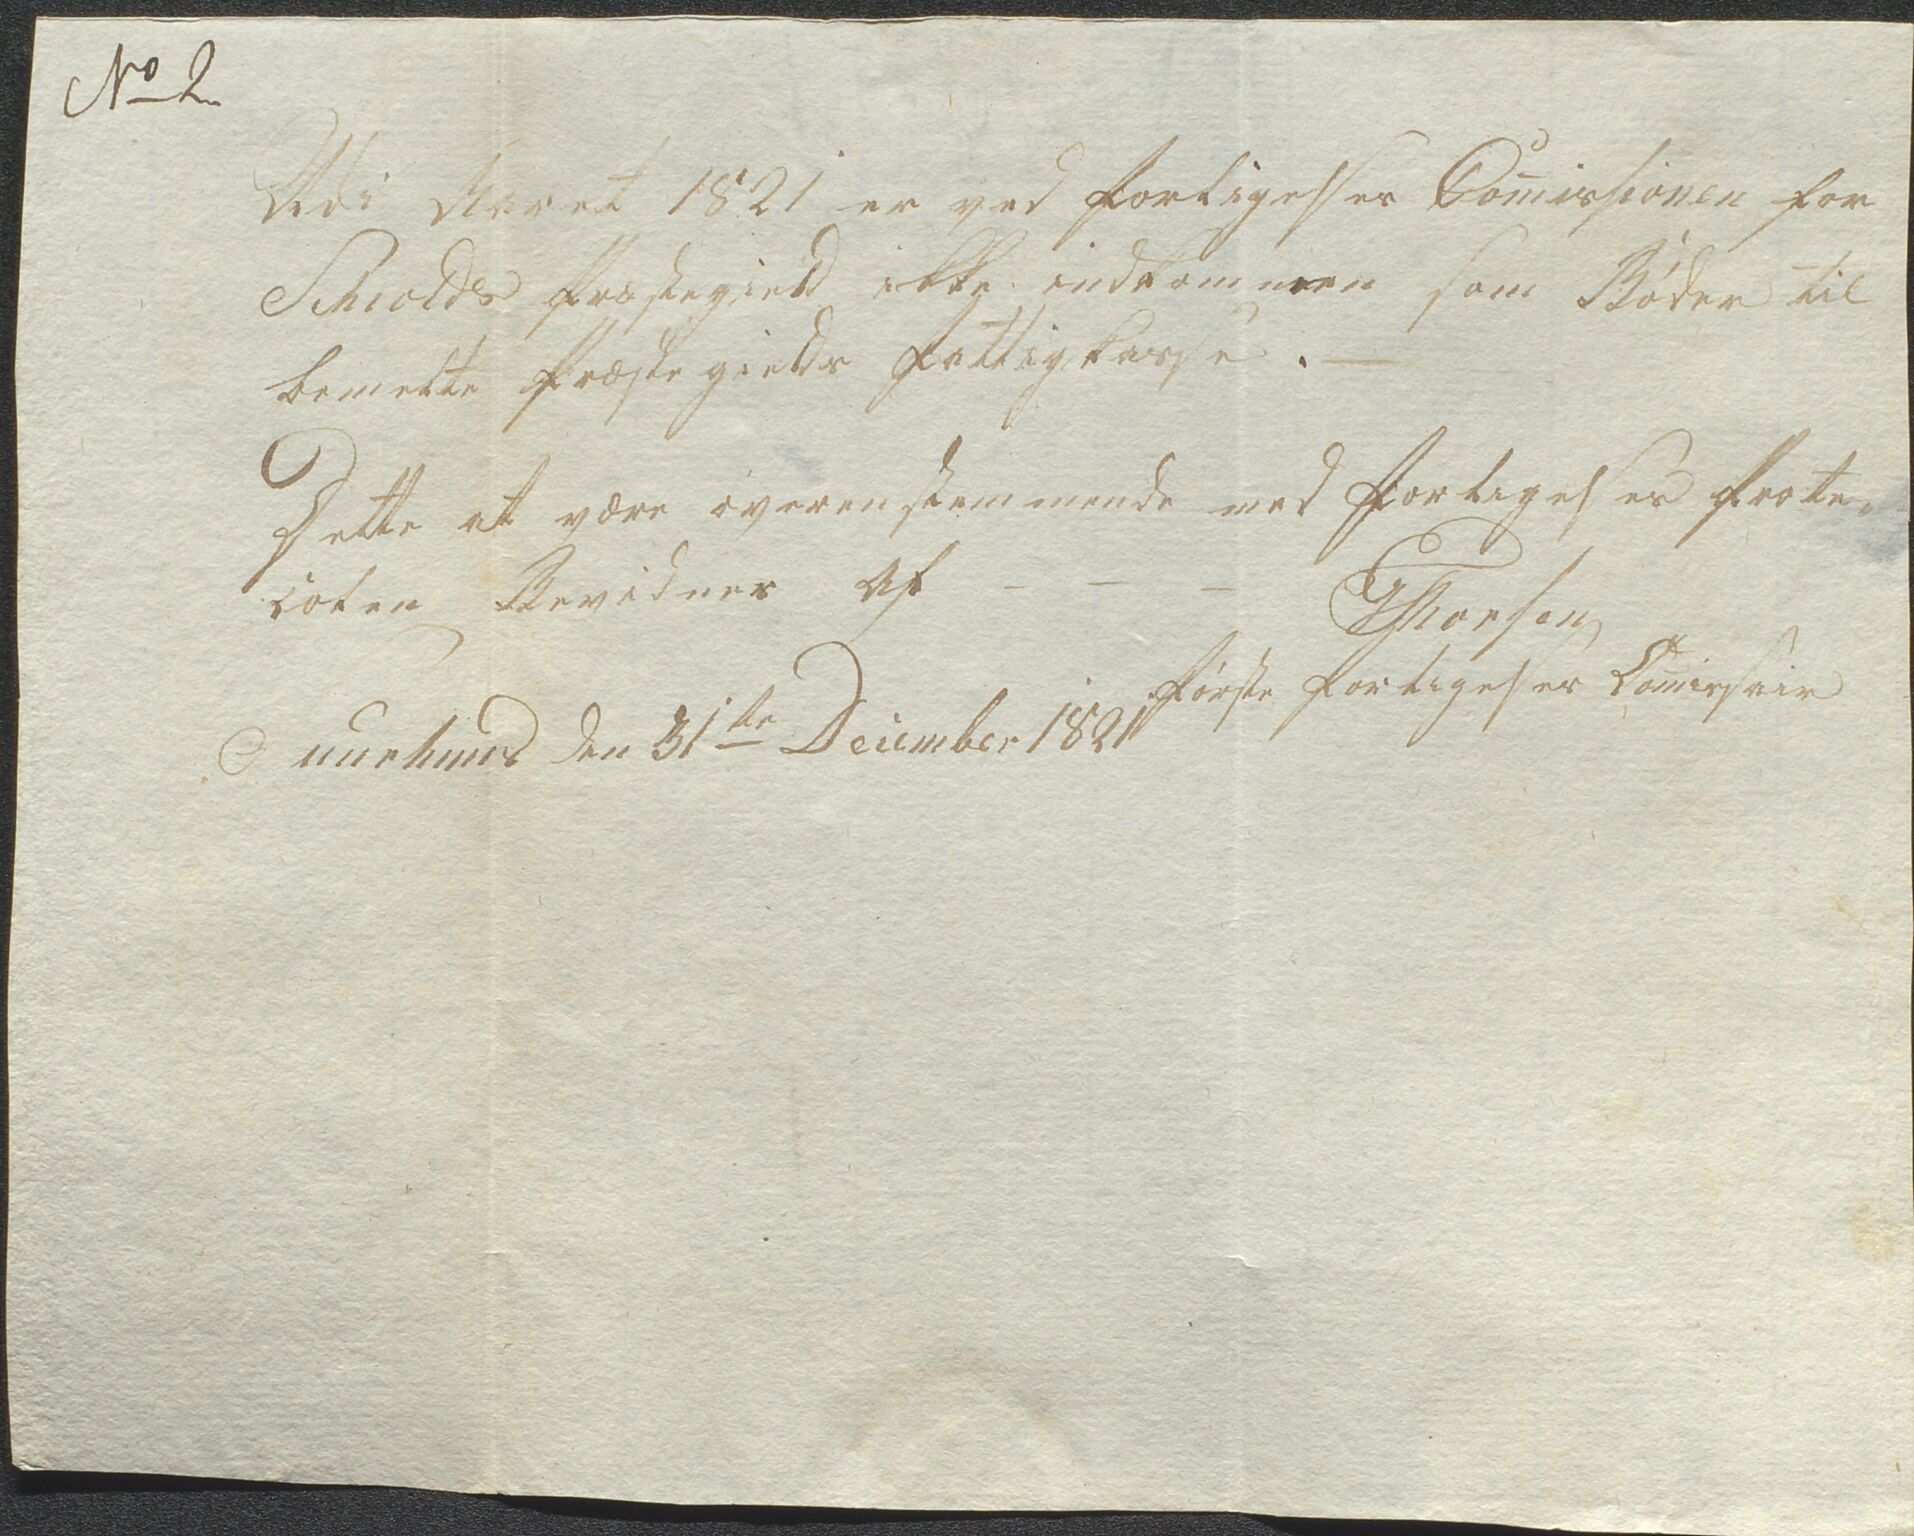 No 2
Udi Aaret 1821 er ved Forligelses Commissionen for
Schiolds Præstegield ikke indkommen som Bøder til
bemelte Præstegields Fattigkasse . —
Dette at være overenstemmende med Forligelses Proto„
collen Bevidner Af — — —
Thorsen
første Forligelses Commissair
den 31te December 1821